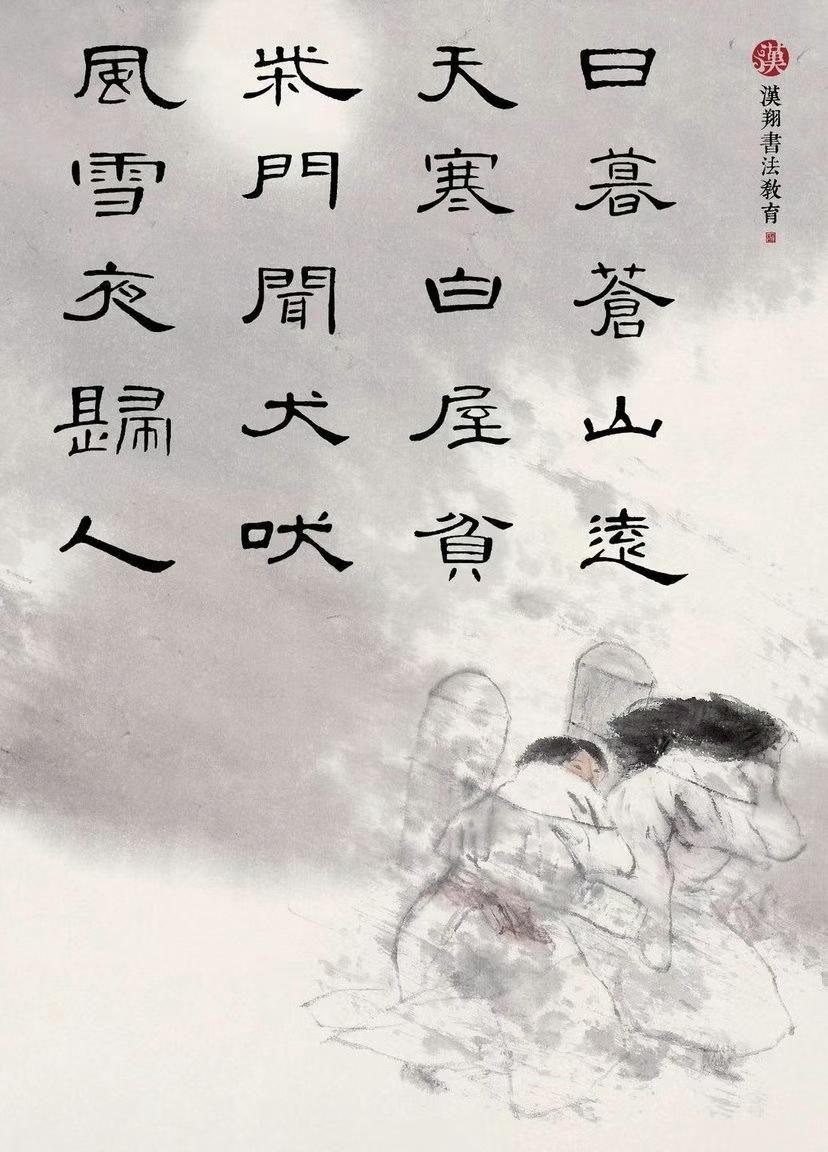 漢
漢翔書法教育
日暮蒼山遠
天寒白屋貧
柴門聞犬吠
風雪夜歸人